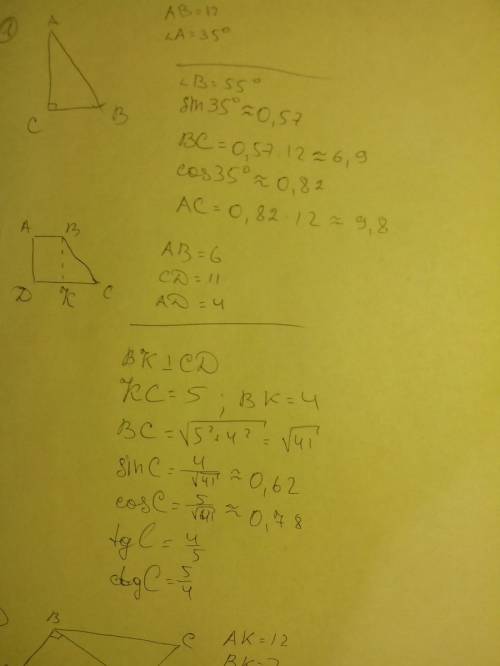 A
C
B
AB=12
∠A=35°
∠B=55°
sin35°≈0,57
BC=0,57·12≈6,9
cos35°≈0,82
AC=0,82·12≈9,8
A B
D K C
AB=6
CD=11
AD=4
BK⊥CD
KC=5; BK=4
BC=√(5²+4²)=√41
sinC=4/√41≈0,62
cosC=5/√41≈0,78
tgC=4/5
ctgC=5/4
B
C
AK=12